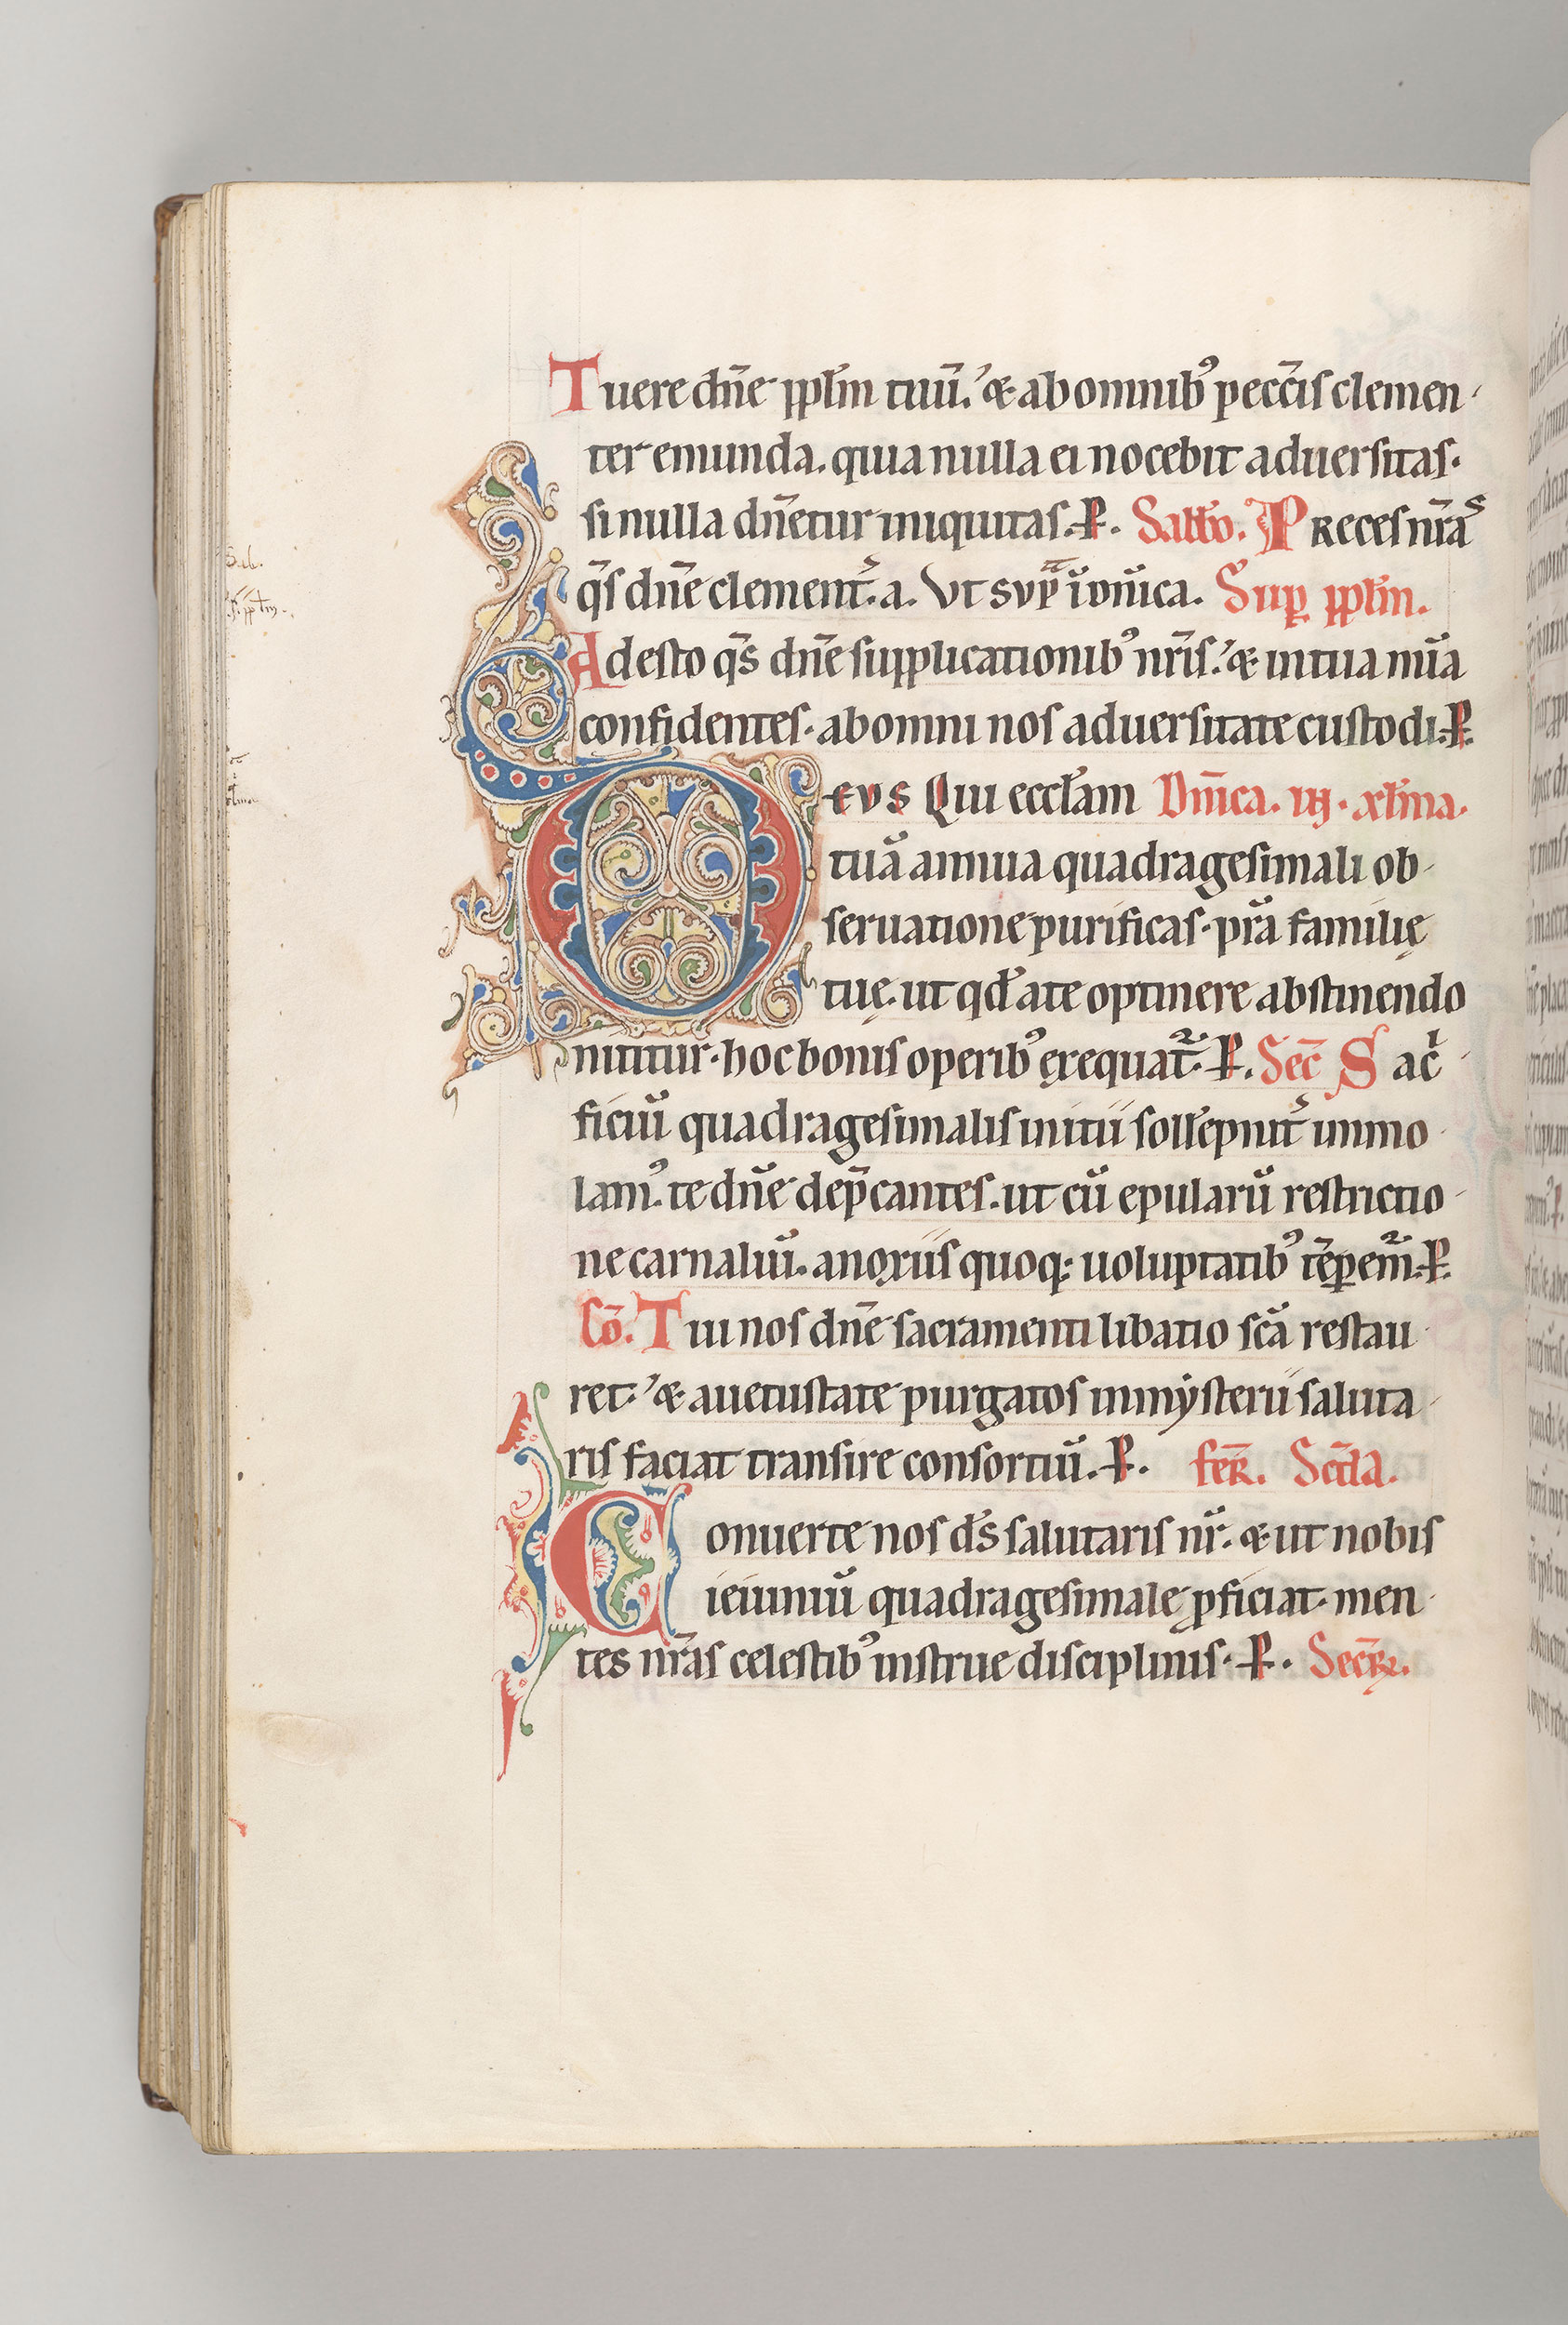 Tuere dn̄e ppl̄m tuū. ꝫ ab omnibꝰ pecc̄is clemen
ter emunda. quia nulla ei nocebit aduersitas.
si nulla dn̄etur iniquitas. P. Sabb̄o. Preces nr̄as
q̄s dn̄e clement̄. a. Vt svp̄ i dn̄ica. Sup ppl̄m.
Adesto q̄s dn̄e supplicationibꝰ nr̄is. ꝫ in tua mīa
confidentes. ab omni nos aduersitate custodi. P.
Deus Qui eccl̄am Dn̄ica. in. xl̄ma.
tuā annua quadragesimali ob
seruatione purificas. pr̄a familię
tuę. ut qd̄ a te optinere abstinendo
nititur. hoc bonis operibꝰ exequat̄. P. Sec̄ Sacⁱ
ficiū quadragesimalis initii soll̄epnit̄ immo
lamꝰ. te dn̄e dep̄cantes. ut cū epularū restrictio
ne carnaliū. a noxiis quoq; uoluptatibꝰ tēꝑem̄. P.
Cō. Tui nos dn̄e sacramenti libatio sc̄a restau
ret. ꝫ a uetustate purgatos in mẏsterii saluta
ris faciat transire consortiū. P. fer̄. Sc̄da.
Conuerte nos ds̄ salutaris nr̄. ꝫ ut nobis
ieiuniū quadragesimale ꝓficiat. men
tes nr̄as celestibꝰ instrue disciplinis. P. Secr̄.